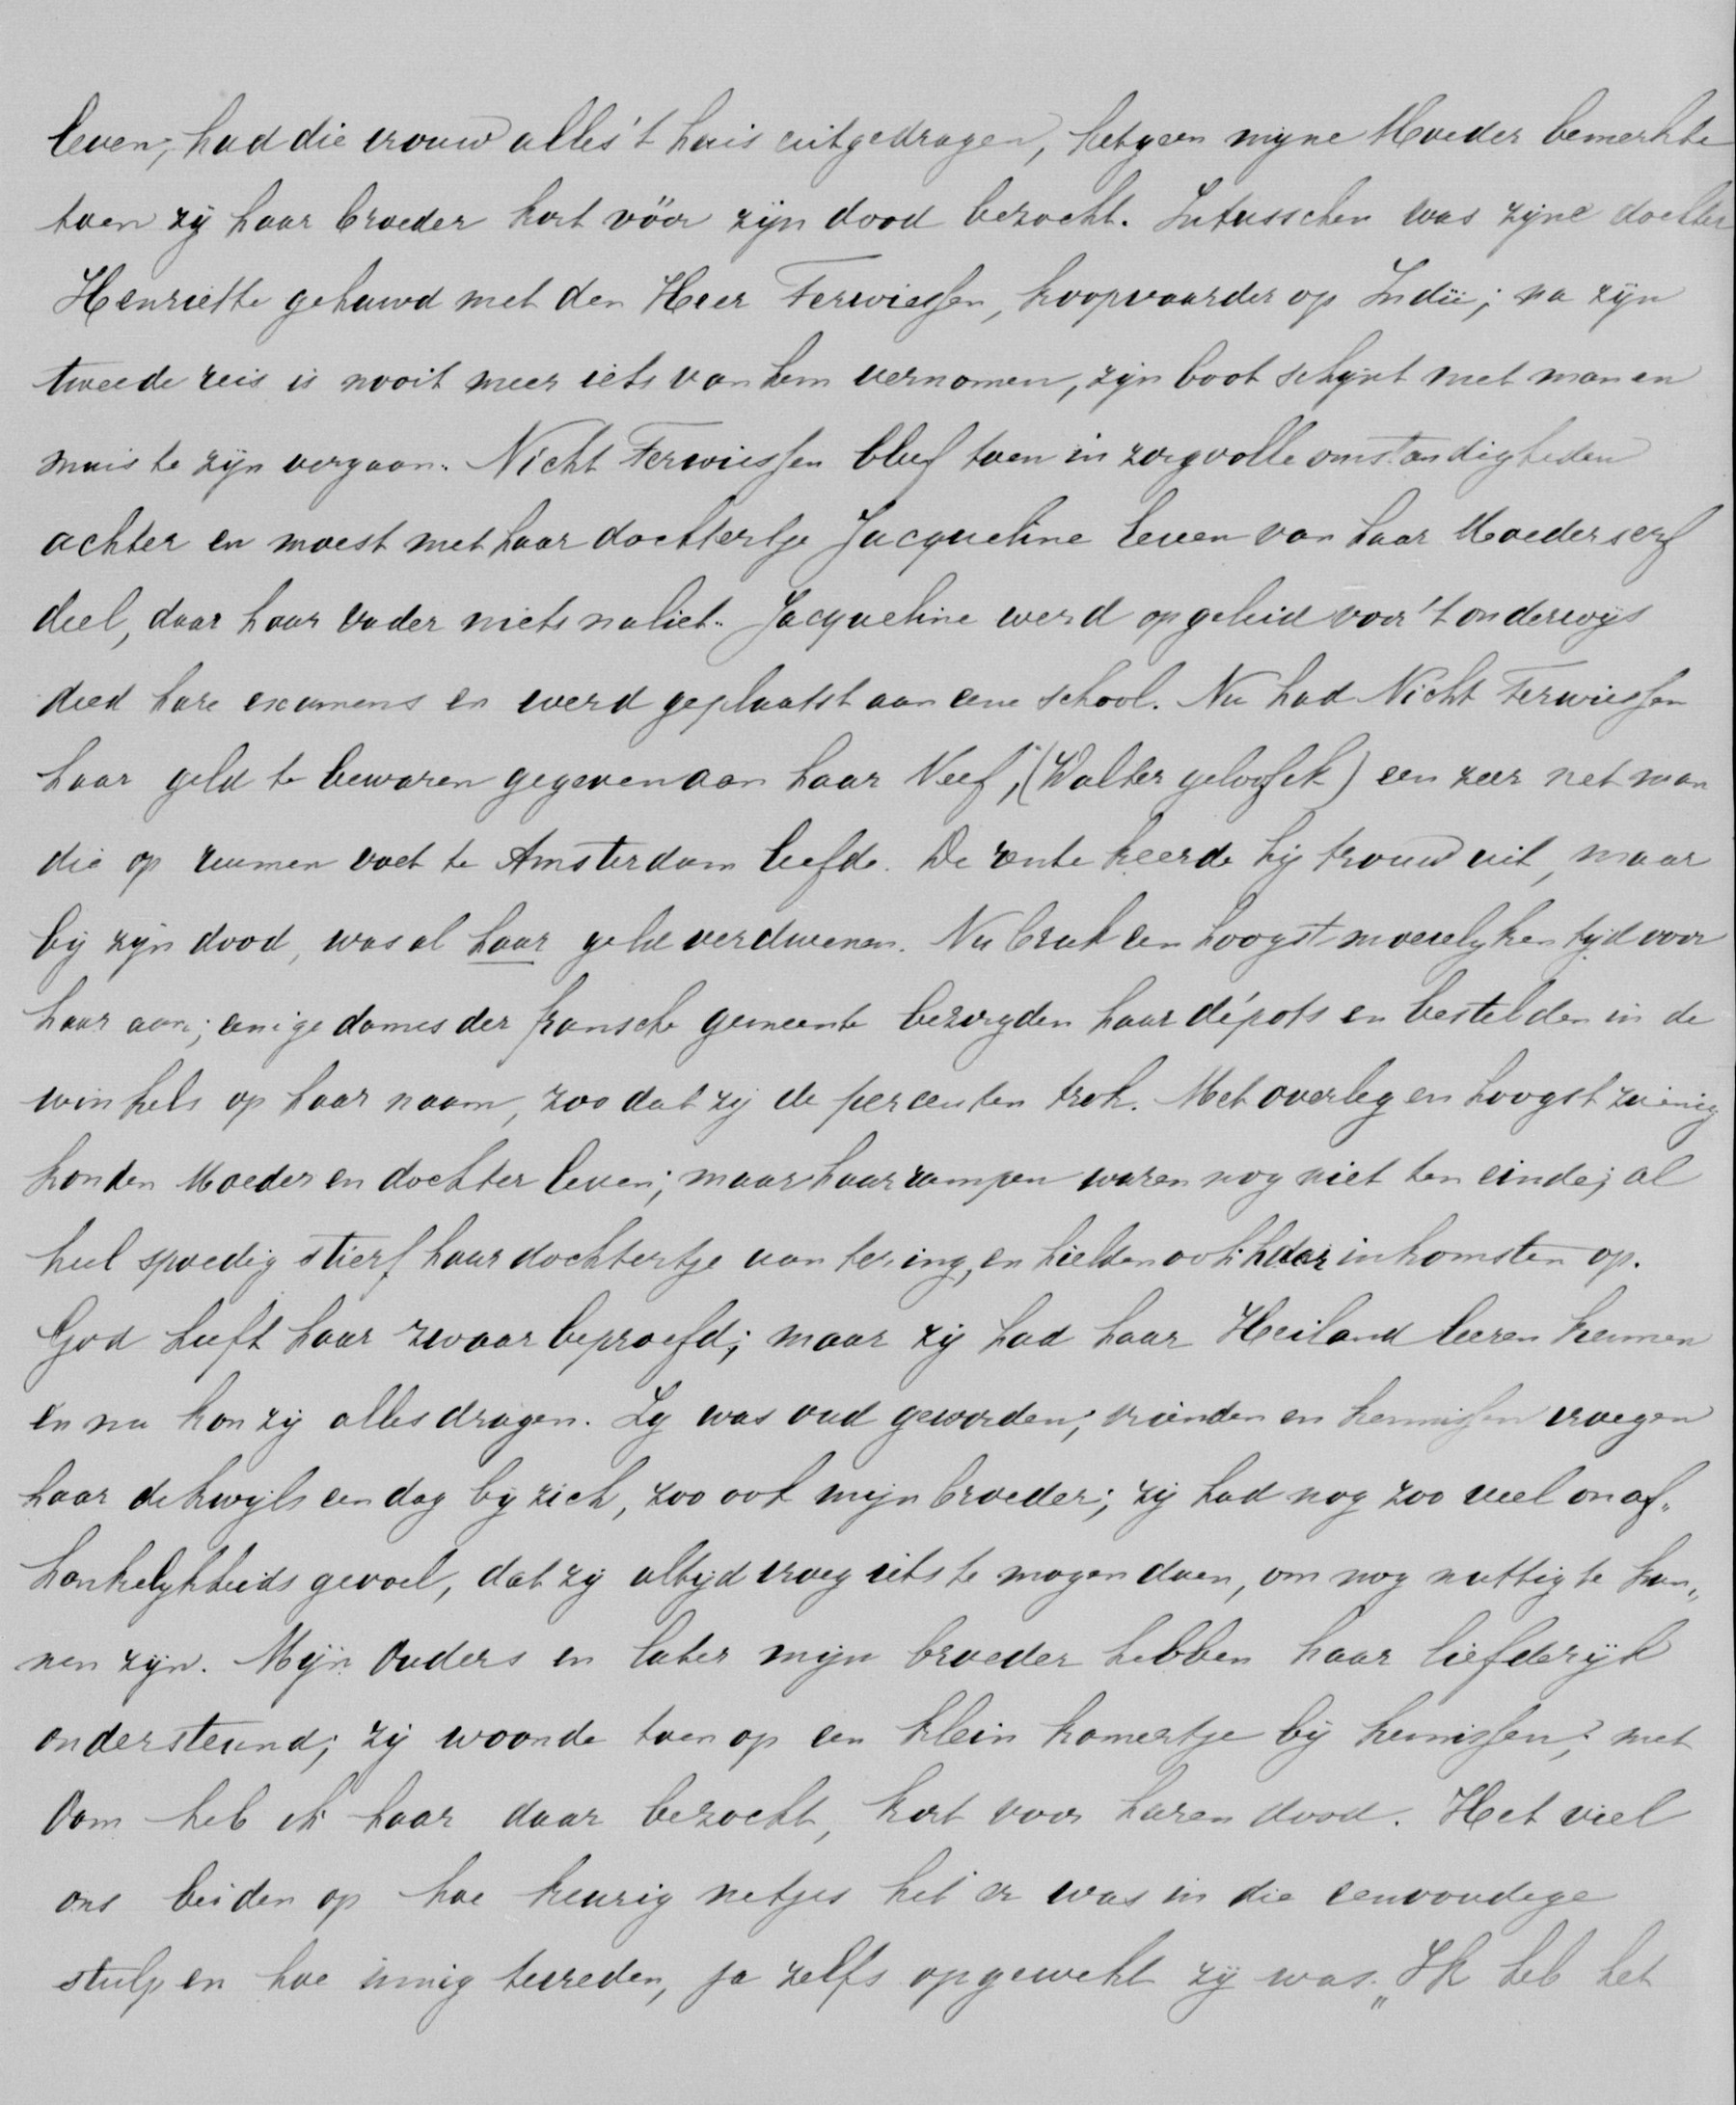 leven, had die vrouw alles 't huis uitgedragen, hetgeen mijne Moeder bemerkte
toen zij haar broeder kort vóór zijn dood bezocht. Intusschen was zijne dochter
Henriette gehuwd met den Heer Ferwiessen, koopvaarder op Indië; na zijn
tweede reis is nooit meer iets van hem vernomen, zijn boot schijnt met man en
muis te zijn vergaan. Nicht Ferwiessen bleef toen in zorgvolle omstandigheden
achter en moest met haar dochtertje Jacqueline leven van haar Moeders erf
deel, daar haar vader niets naliet. Jacqueline werd opgeleid voor 't onderwijs
deed hare examens en werd geplaatst aan eene school. Nu had Nicht Ferwiessen
haar geld te bewaren gegeven aan haar Neef, (Walter geloof ik) een zeer net man
die op ruimen voet te Amsterdam leefde. De rente keerde hij trouw uit, maar
bij zijn dood, was al haar geld verdwenen. Nu brak een hoogst moeielijken tijd voor
haar aan; eenige dames der fransche gemeente bezorgden haar dépots en bestelden in de
winkels op haar naam, zoodat zij de percenten trok. Met overleg en hoogst zuinig
konden Moeder en dochter leven; maar haar rampen waren nog niet ten einde; al
heel spoedig stierf haar dochtertje aan tering, en hielden ook haar inkomsten op.
God heeft haar zwaar beproefd; maar zij had haar Heiland leeren kennen
en nu kon zij alles dragen. Zij was oud geworden; vrienden en kennissen vroegen
haar dikwijls een dag bij zich, zoo ook mijn broeder; zij had nog zoo veel onaf„
hankelijkheids gevoel, dat zij altijd vroeg iets te mogen doen, om nog nuttig te kun„
nen zijn. Mijn Ouders en later mijn broeder hebben haar liefderijk
ondersteund; zij woonde toen op een klein kamertje bij kennissen; met
Oom heb ik haar daar bezocht, kort voor haren dood. Het viel
ons beiden op hoe keurig netjes het er was in die eenvoudige
stulp en hoe innig tevreden, ja zelfs opgewekt zij was. „Ik heb het